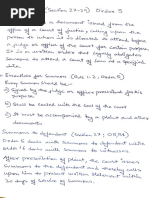 (Section 27-29) Order 5
is a document issued from the
office of a court of justice, calling upon the
person to whom it is directed to attend before
a judge or officer of the court for certain purpose.
It is a written order that legally obligates
someone to attend a court of law at a specified
date.
Essentials for Summons (Rule 1-2, Order 5)
Every Summons shall be
a) Signed by the judge or officer prescribed
b) Shall be sealed with the seal of the court
c) Must be accompanied by a plaint
Summons to defendant (Section 27; O5, R1)
Order 5 deals with summons to defendant while
order 16 deals with summons to witnesses.
After presentation of plaint, the court issues
summons to the defendant and thereby calling
upon him to present written statement within
30 days of service of summons.